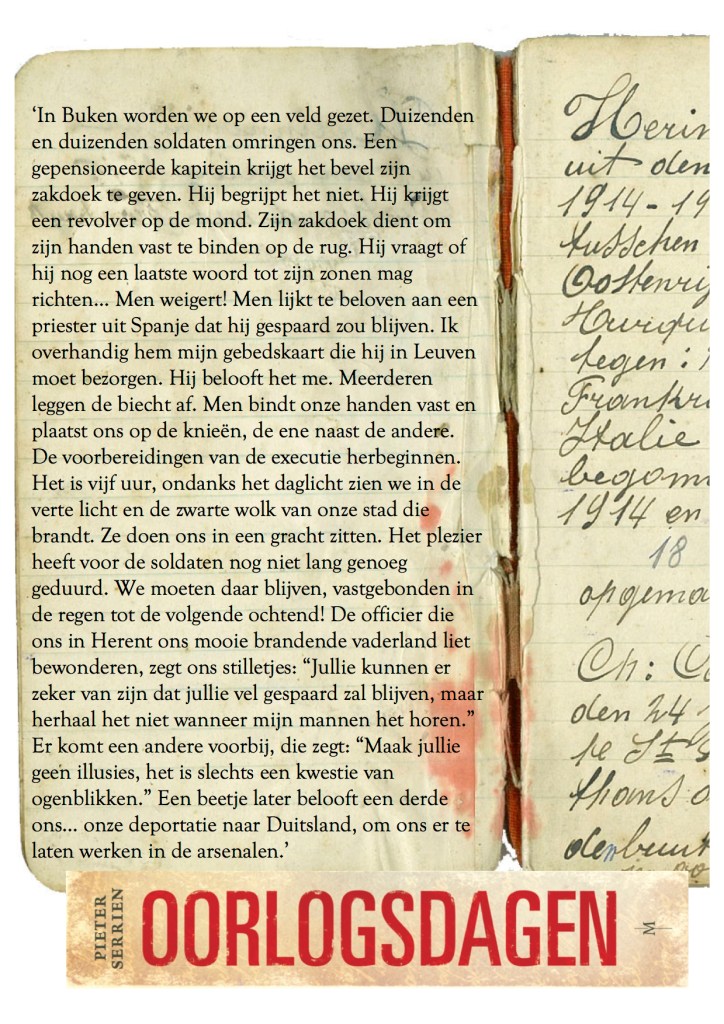 ‘In Buken worden we op een veld gezet. Duizenden
en duizenden soldaten omringen ons. Een
gepensioneerde kapitein krijgt het bevel zijn
zakdoek te geven. Hij begrijpt het niet. Hij krijgt
een revolver op de mond. Zijn zakdoek dient om
zijn handen vast te binden op de rug. Hij vraagt of
hij nog een laatste woord tot zijn zonen mag
richten... Men weigert! Men lijkt te beloven aan een
priester uit Spanje dat hij gespaard zou blijven. Ik
overhandig hem mijn gebedskaart die hij in Leuven
moet bezorgen. Hij belooft het me. Meerderen
leggen de biecht af. Men bindt onze handen vast en
plaatst ons op de knieën, de ene naast de andere.
De voorbereidingen van de executie herbeginnen.
Het is vijf uur, ondanks het daglicht zien we in de
verte licht en de zwarte wolk van onze stad die
brandt. Ze doen ons in een gracht zitten. Het plezier
heeft voor de soldaten nog niet lang genoeg
geduurd. We moeten daar blijven, vastgebonden in
de regen tot de volgende ochtend! De officier die
ons in Herent ons mooie brandende vaderland liet
bewonderen, zegt ons stilletjes: “Jullie kunnen er
zeker van zijn dat jullie vel gespaard zal blijven, maar
herhaal het niet wanneer mijn mannen het horen.”
Er komt een andere voorbij, die zegt: “Maak jullie
geen illusies, het is slechts een kwestie van
ogenblikken.” Een beetje later belooft een derde
ons... onze deportatie naar Duitsland, om ons er te
laten werken in de arsenalen.’
Herin
uit den
1914-19
tusschen
Oostenrij
tegen:
Frankr
Italie
begon
1914 en
18
opgema
Ch:
den 24
te St
thans
PIETER
SERRIEN
OORLOGSDAGEN
M